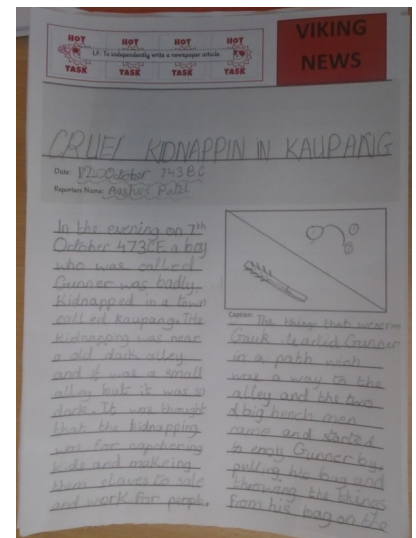 HOT HOT HOT HOT
L.F. To independently write a newspaper article
TASK TASK TASK TASK
VIKING
NEWS
CRUEL KIDNAPPIN IN KAUPANIG
Date: 12 October 743BC
Reporters Name:
In the evening on 7th
October 473CE a boy
who was called
Gunner was badly
Kidnapped in a town
called Kaupang. The
Kidnapping was near
a old dark alley
and it was a small
alley but it was so
dark. It was thought
that the kidnapping
was for
kids and making
them slaves to sale
and work for people.
Caption: The things that
Gunner
in a path wich
was a way to the
alley and the two
big hench men
came and started
to Gunner by
pulling his bag and
throwing the things
from his bag on the